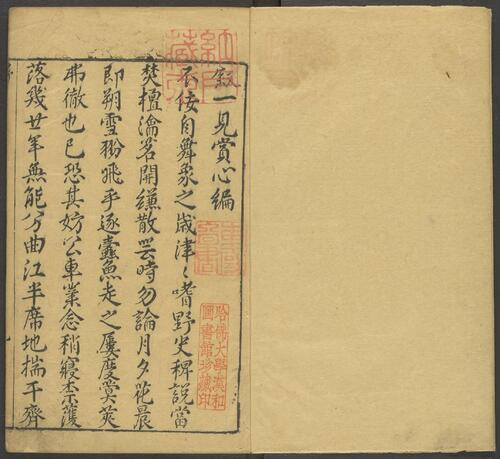 叙一見賞心編
不佞自舞象之歲津〻嗜野史稗說當
焚檀瀹茗開縑散帙時勿論月夕花晨
即朔雪粉飛乎逐蠹魚走之屢度蓂莢
弗徹也已恐其妨公車業念稍寢柰濩
落幾廿年無能分曲江半席地揣于齊
哈佛大學漢和
圖書館珍藏印